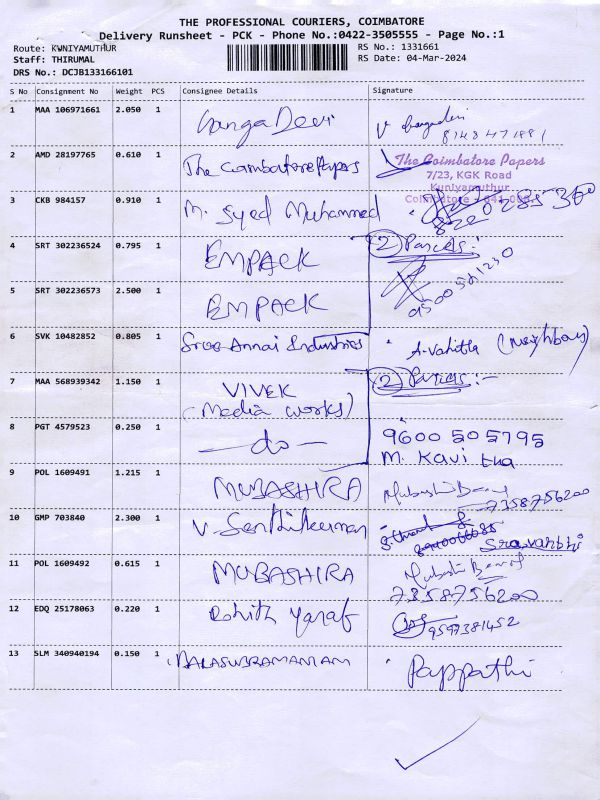 THE PROFESSIONAL COURIERS, COIMBATORE
Delivery Runsheet - PCK - Phone No.:0422-3505555 - Page No.:1
Route: KUNIYAMUTHUR
Staff: THIRUMAL
DRS No.: DCJB133166101
RS No.: 1331661
RS Date: 04-Mar-2024
S No Consignment No Weight PCS Consignee Details Signature
1 MAA 106971661 2.050 1 Ganga Devi
2 AMD 28197765 0.610 1 The Coimbatore Papers
The Coimbatore Papers
7/23, KGK Road
Kuniyamuthur
3 CKB 984157 0.910 1 M. Syed Muhammed
4 SRT 302236524 0.795 1 EMPACK
2 Parcels:-
9500541230
5 SRT 302236573 2.500 1 EMPACK
6 SVK 10482852 0.805 1 Sree Annai Industries A. Vahitha (Neighbour)
7 MAA 568939342 1.150 1 VIVEK
(Media works)
2 Parcels:-
8 PGT 4579523 0.250 1 — do —
9600505795
M. Kavitha
9 POL 1609491 1.215 1 MUBASHIRA
7358756200
10 GMP 703840 2.300 1 V. Senthilkumar
11 POL 1609492 0.615 1 MUBASHIRA
7358756200
12 EDQ 25178063 0.220 1 Rohith
9597381452
13 SLM 340940194 0.150 1 BALASUBRAMANIAM Pappathi